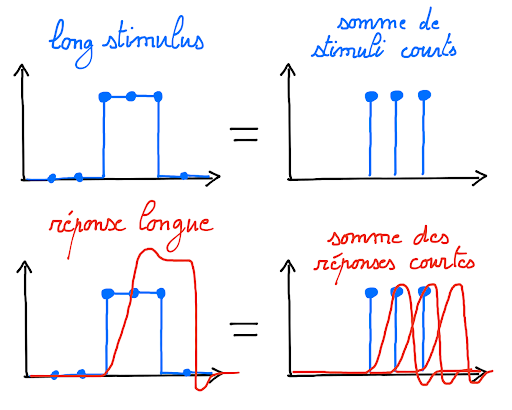 long stimulus
somme de
stimuli courts
=
réponse longue
somme des
réponses courtes
=